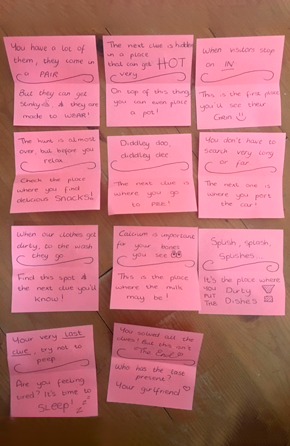 You have a lot of
them, they come in
a PAIR
But they can get
stinky, & they are
made to WEAR!
The next clue is hidden
in a place
that can get HOT
very
On top of this thing,
you can even place
a pot!
When visitors stop
on IN
This is the first place
you'll see their
Grin
The hunt is almost
over, but before you
relax,
Check the place
where you find
delicious Snacks!
Diddley doo,
diddley dee
The next clue is
where you go
to PEE!
You don't have to
search very long
or far
The next one is
where you park
the car!
When our clothes get
dirty, to the wash
they go
Find this spot &
the next clue you'll
know!
Calcium is important
for your bones
you see
This is the place
where the milk
may be!
Splish, splash,
splushes...
It's the place where
you Dirty
PUT
THE Dishes
Your very last
clue, try not to
peep
Are you feeling
tired? It's time to
SLEEP!
zzz
You solved all the
clues! But this isn't
the End
Who has the last
present?
Your girlfriend